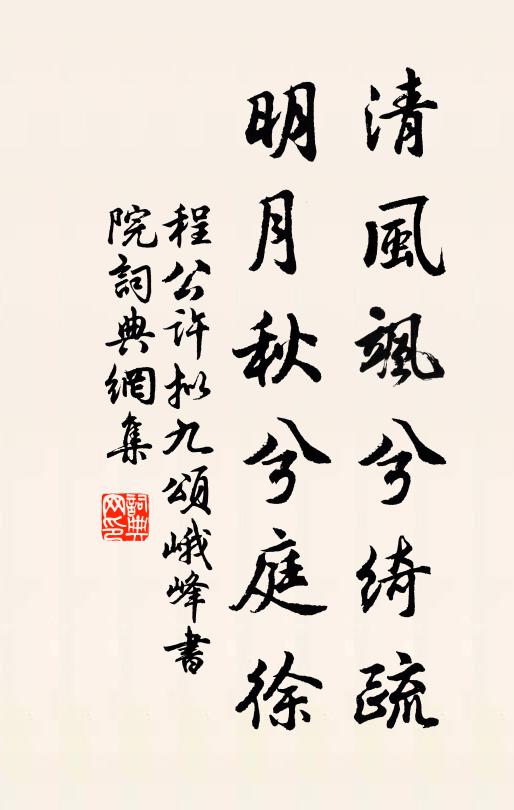 清風颯兮綺疏
明月秋兮庭徐
程公許拟九頌峨峰書
院詞典網集
詞典
网印